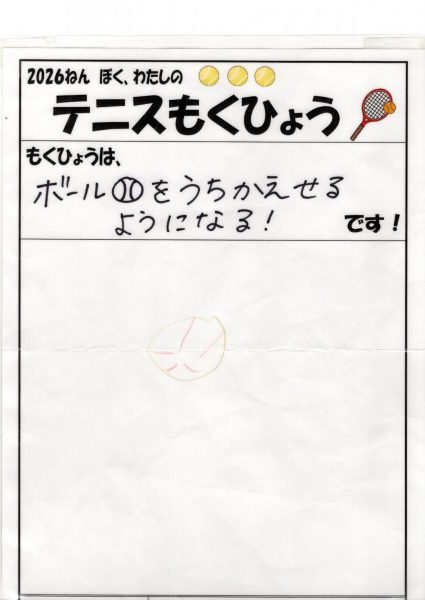 2026ねん ぼく、わたしの
テニスもくひょう
もくひょうは、
ボールをうちかえせる
ようになる！
です！